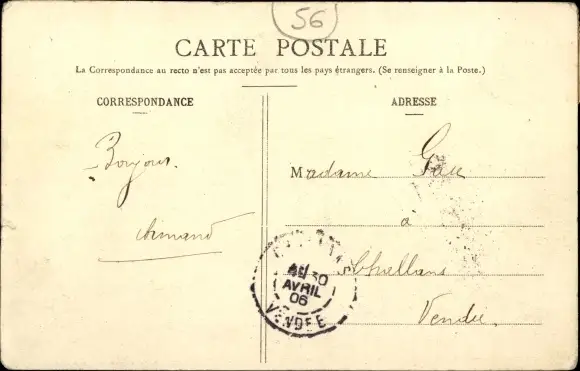 56
CARTE POSTALE
La Correspondance au recto n'est pas acceptée par tous les pays étrangers. (Se renseigner à la Poste.)
CORRESPONDANCE
Bonjour.
Armand
ADRESSE
Madame
à
Challans
Vendée.
30
AVRIL
06
VENDEE